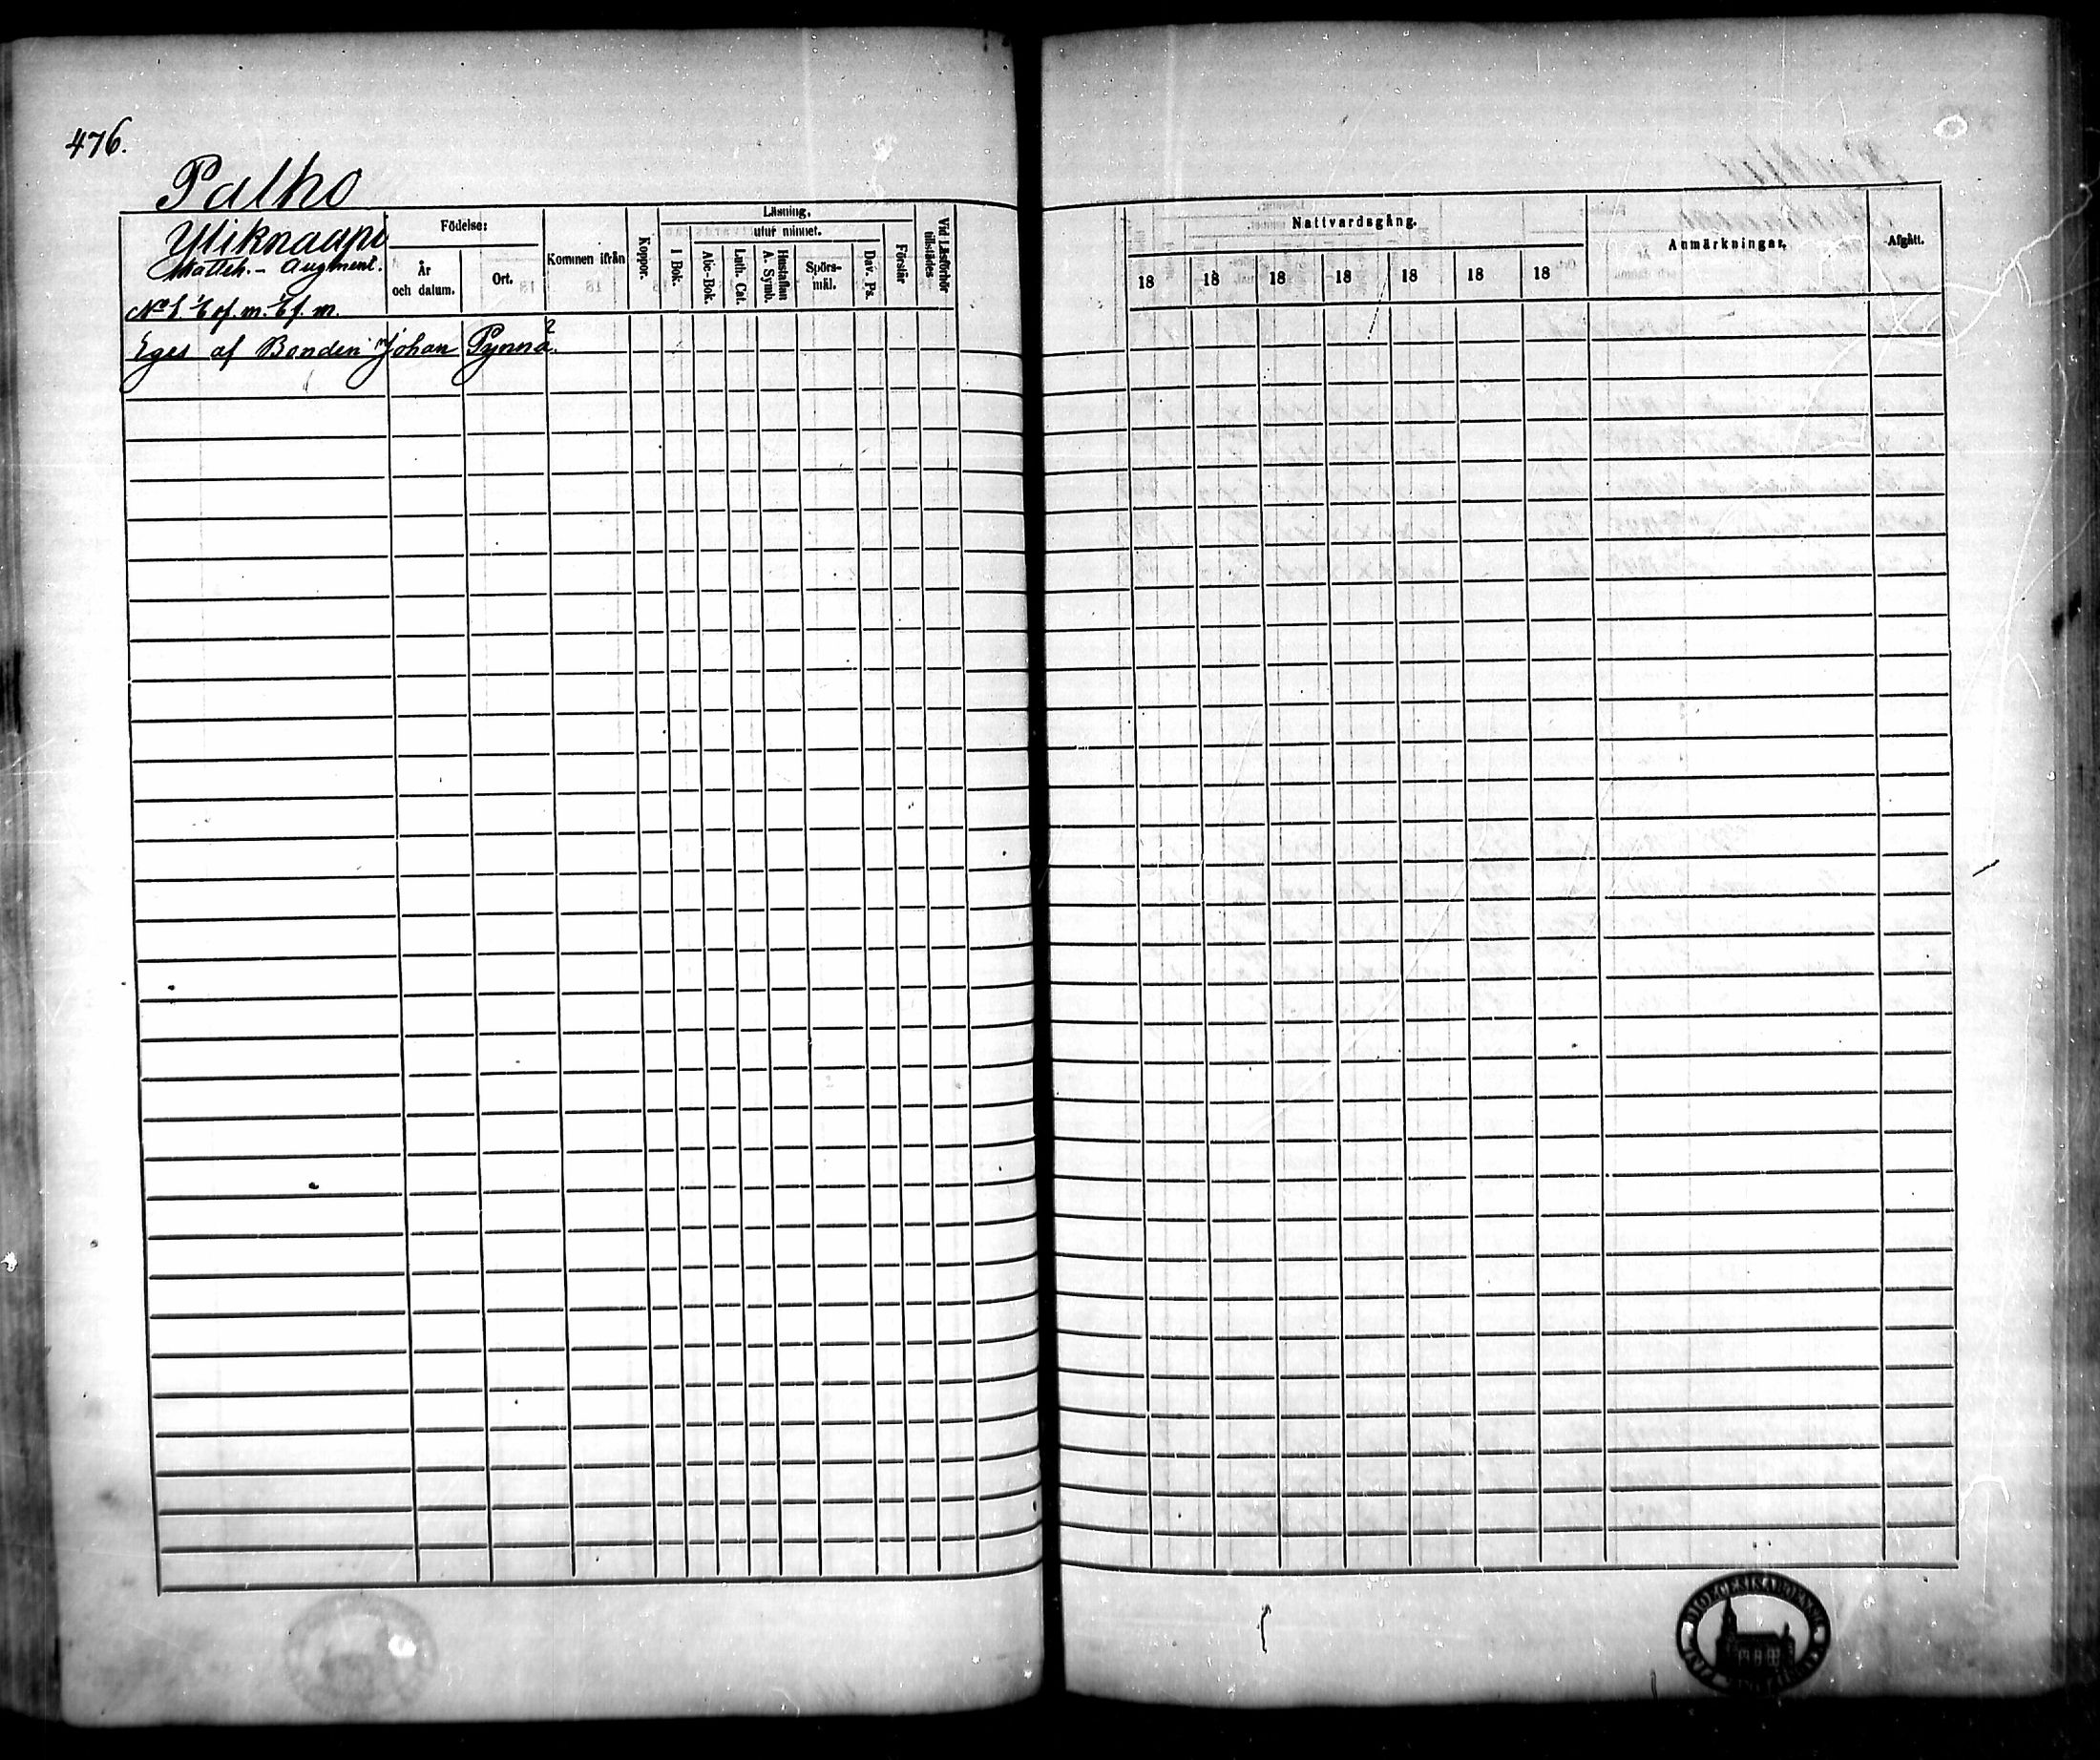 476.
Palho
Yliknaapi
Skatteh. - Augment.
No 1. of. m.
Eges af Bonden Johan Pynnä.
Födelse:
År
och datum.
Ort.
Kommen ifrån
Koppor.
Läsning,
utur minnet.
I Bok.
Abc-Bok.
Luth. Cat.
Hustaflan
A. Symb.
Spörs-
mål.
Dav. Ps.
Förstår
Vid Läsförhör
tillstädes
Nattvardsgång.
18 18 18 18 18 18 18
Anmärkningar.
Afgått.